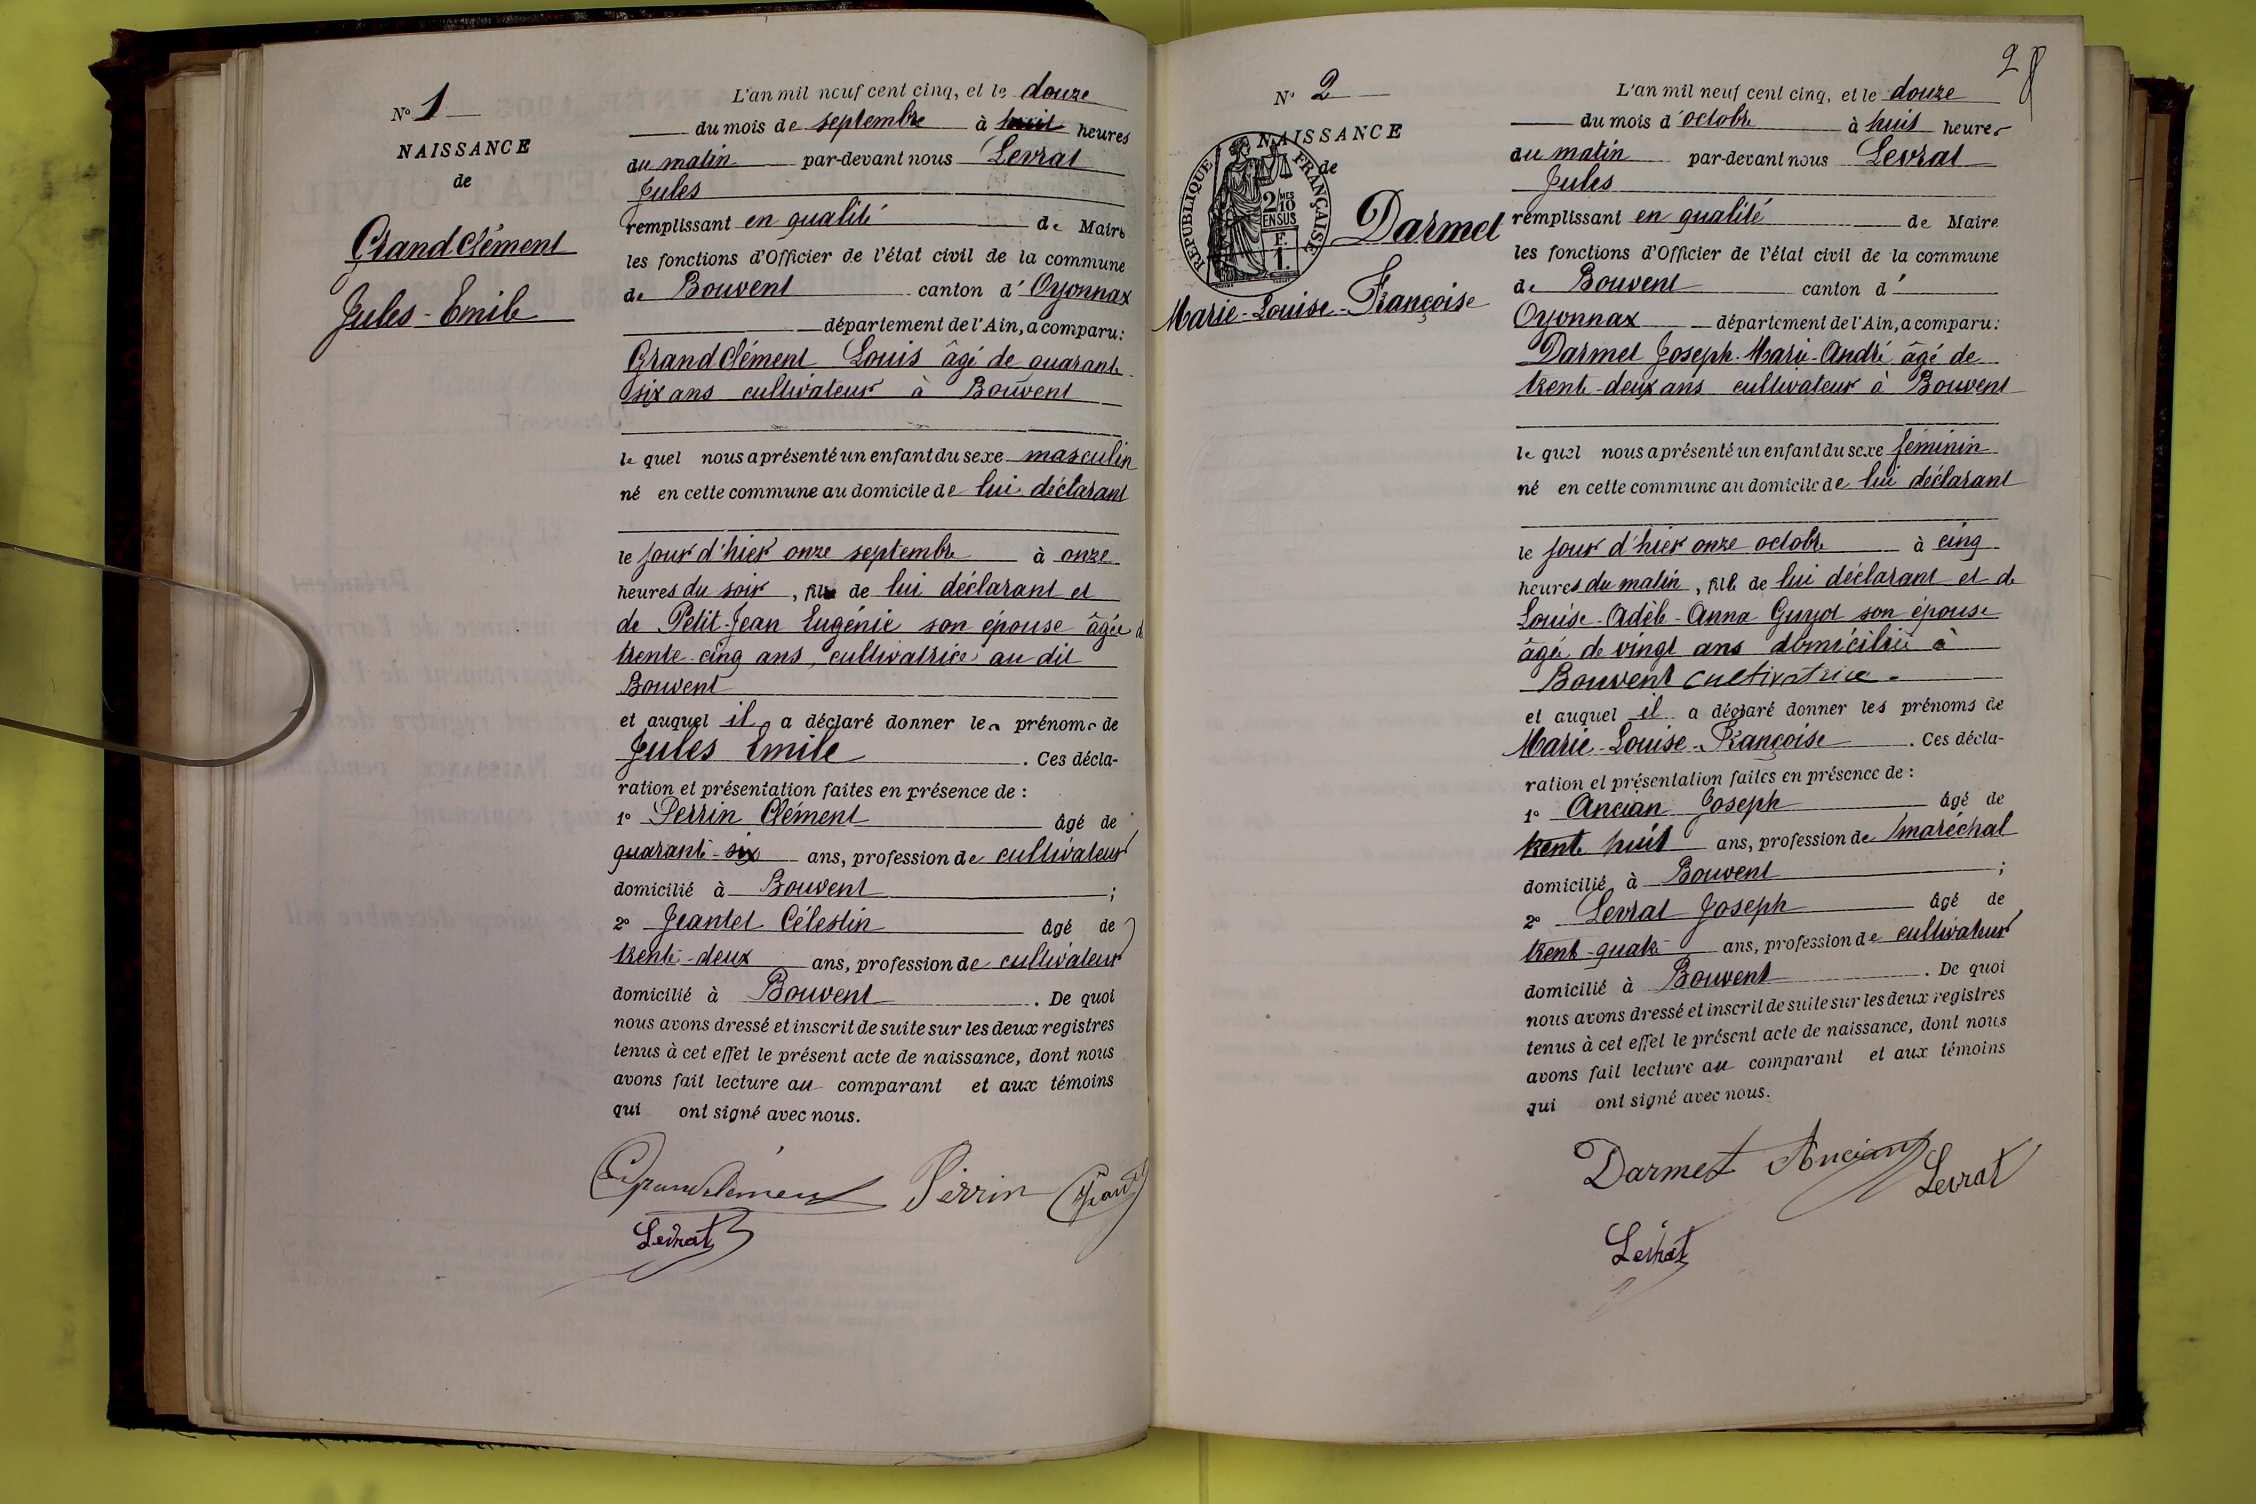 N° 1
NAISSANCE
de
Grandclément
Jules-Emile
L'an mil neuf cent cinq, et le douze
du mois de septembre à huit heures
du matin par-devant nous Levrat
Jules
remplissant en qualité de Maire
les fonctions d'Officier de l'état civil de la commune
de Bouvent canton d'Oyonnax
département de l'Ain, a comparu:
Grandclément Louis âgé de quarante
six ans cultivateur à Bouvent
le quel nous a présenté un enfant du sexe masculin
né en cette commune au domicile de lui déclarant
le jour d'hier onze septembre à onze
heures du soir, fils de lui déclarant et
de Petit-Jean Eugénie son épouse âgée de
trente-cinq ans, cultivatrice au dit
Bouvent
et auquel il a déclaré donner les prénoms de
Jules Emile. Ces décla-
ration et présentation faites en présence de :
1° Perrin Clément âgé de
quarante-six ans, profession de cultivateur
domicilié à Bouvent ;
2° Jeantet Célestin âgé de
trente-deux ans, profession de cultivateur
domicilié à Bouvent. De quoi
nous avons dressé et inscrit de suite sur les deux registres
tenus à cet effet le présent acte de naissance, dont nous
avons fait lecture au comparant et aux témoins
qui ont signé avec nous.
Grandclément Perrin
Levrat
28
N° 2
NAISSANCE
de
RÉPUBLIQUE FRANÇAISE
2/10 MES
EN SUS
F.
1.
Darmet
Marie-Louise-Françoise
L'an mil neuf cent cinq, et le douze
du mois d'octobre à huit heures
du matin par-devant nous Levrat
Jules
remplissant en qualité de Maire
les fonctions d'Officier de l'état civil de la commune
de Bouvent canton d'
Oyonnax département de l'Ain, a comparu:
Darmet Joseph-Marie-André âgé de
trente-deux ans cultivateur à Bouvent
le quel nous a présenté un enfant du sexe féminin
né en cette commune au domicile de lui déclarant
le jour d'hier onze octobre à cinq
heures du matin, fille de lui déclarant et de
Louise-Adèle-Anna Guyot son épouse
âgée de vingt ans domiciliée à
Bouvent cultivatrice.
et auquel il a déclaré donner les prénoms de
Marie-Louise-Françoise. Ces décla-
ration et présentation faites en présence de :
1° Ancian Joseph âgé de
trente huit ans, profession de maréchal
domicilié à Bouvent ;
2° Levrat Joseph âgé de
trente-quatre ans, profession de cultivateur
domicilié à Bouvent. De quoi
nous avons dressé et inscrit de suite sur les deux registres
tenus à cet effet le présent acte de naissance, dont nous
avons fait lecture au comparant et aux témoins
qui ont signé avec nous.
Darmet Ancian Levrat
Levrat